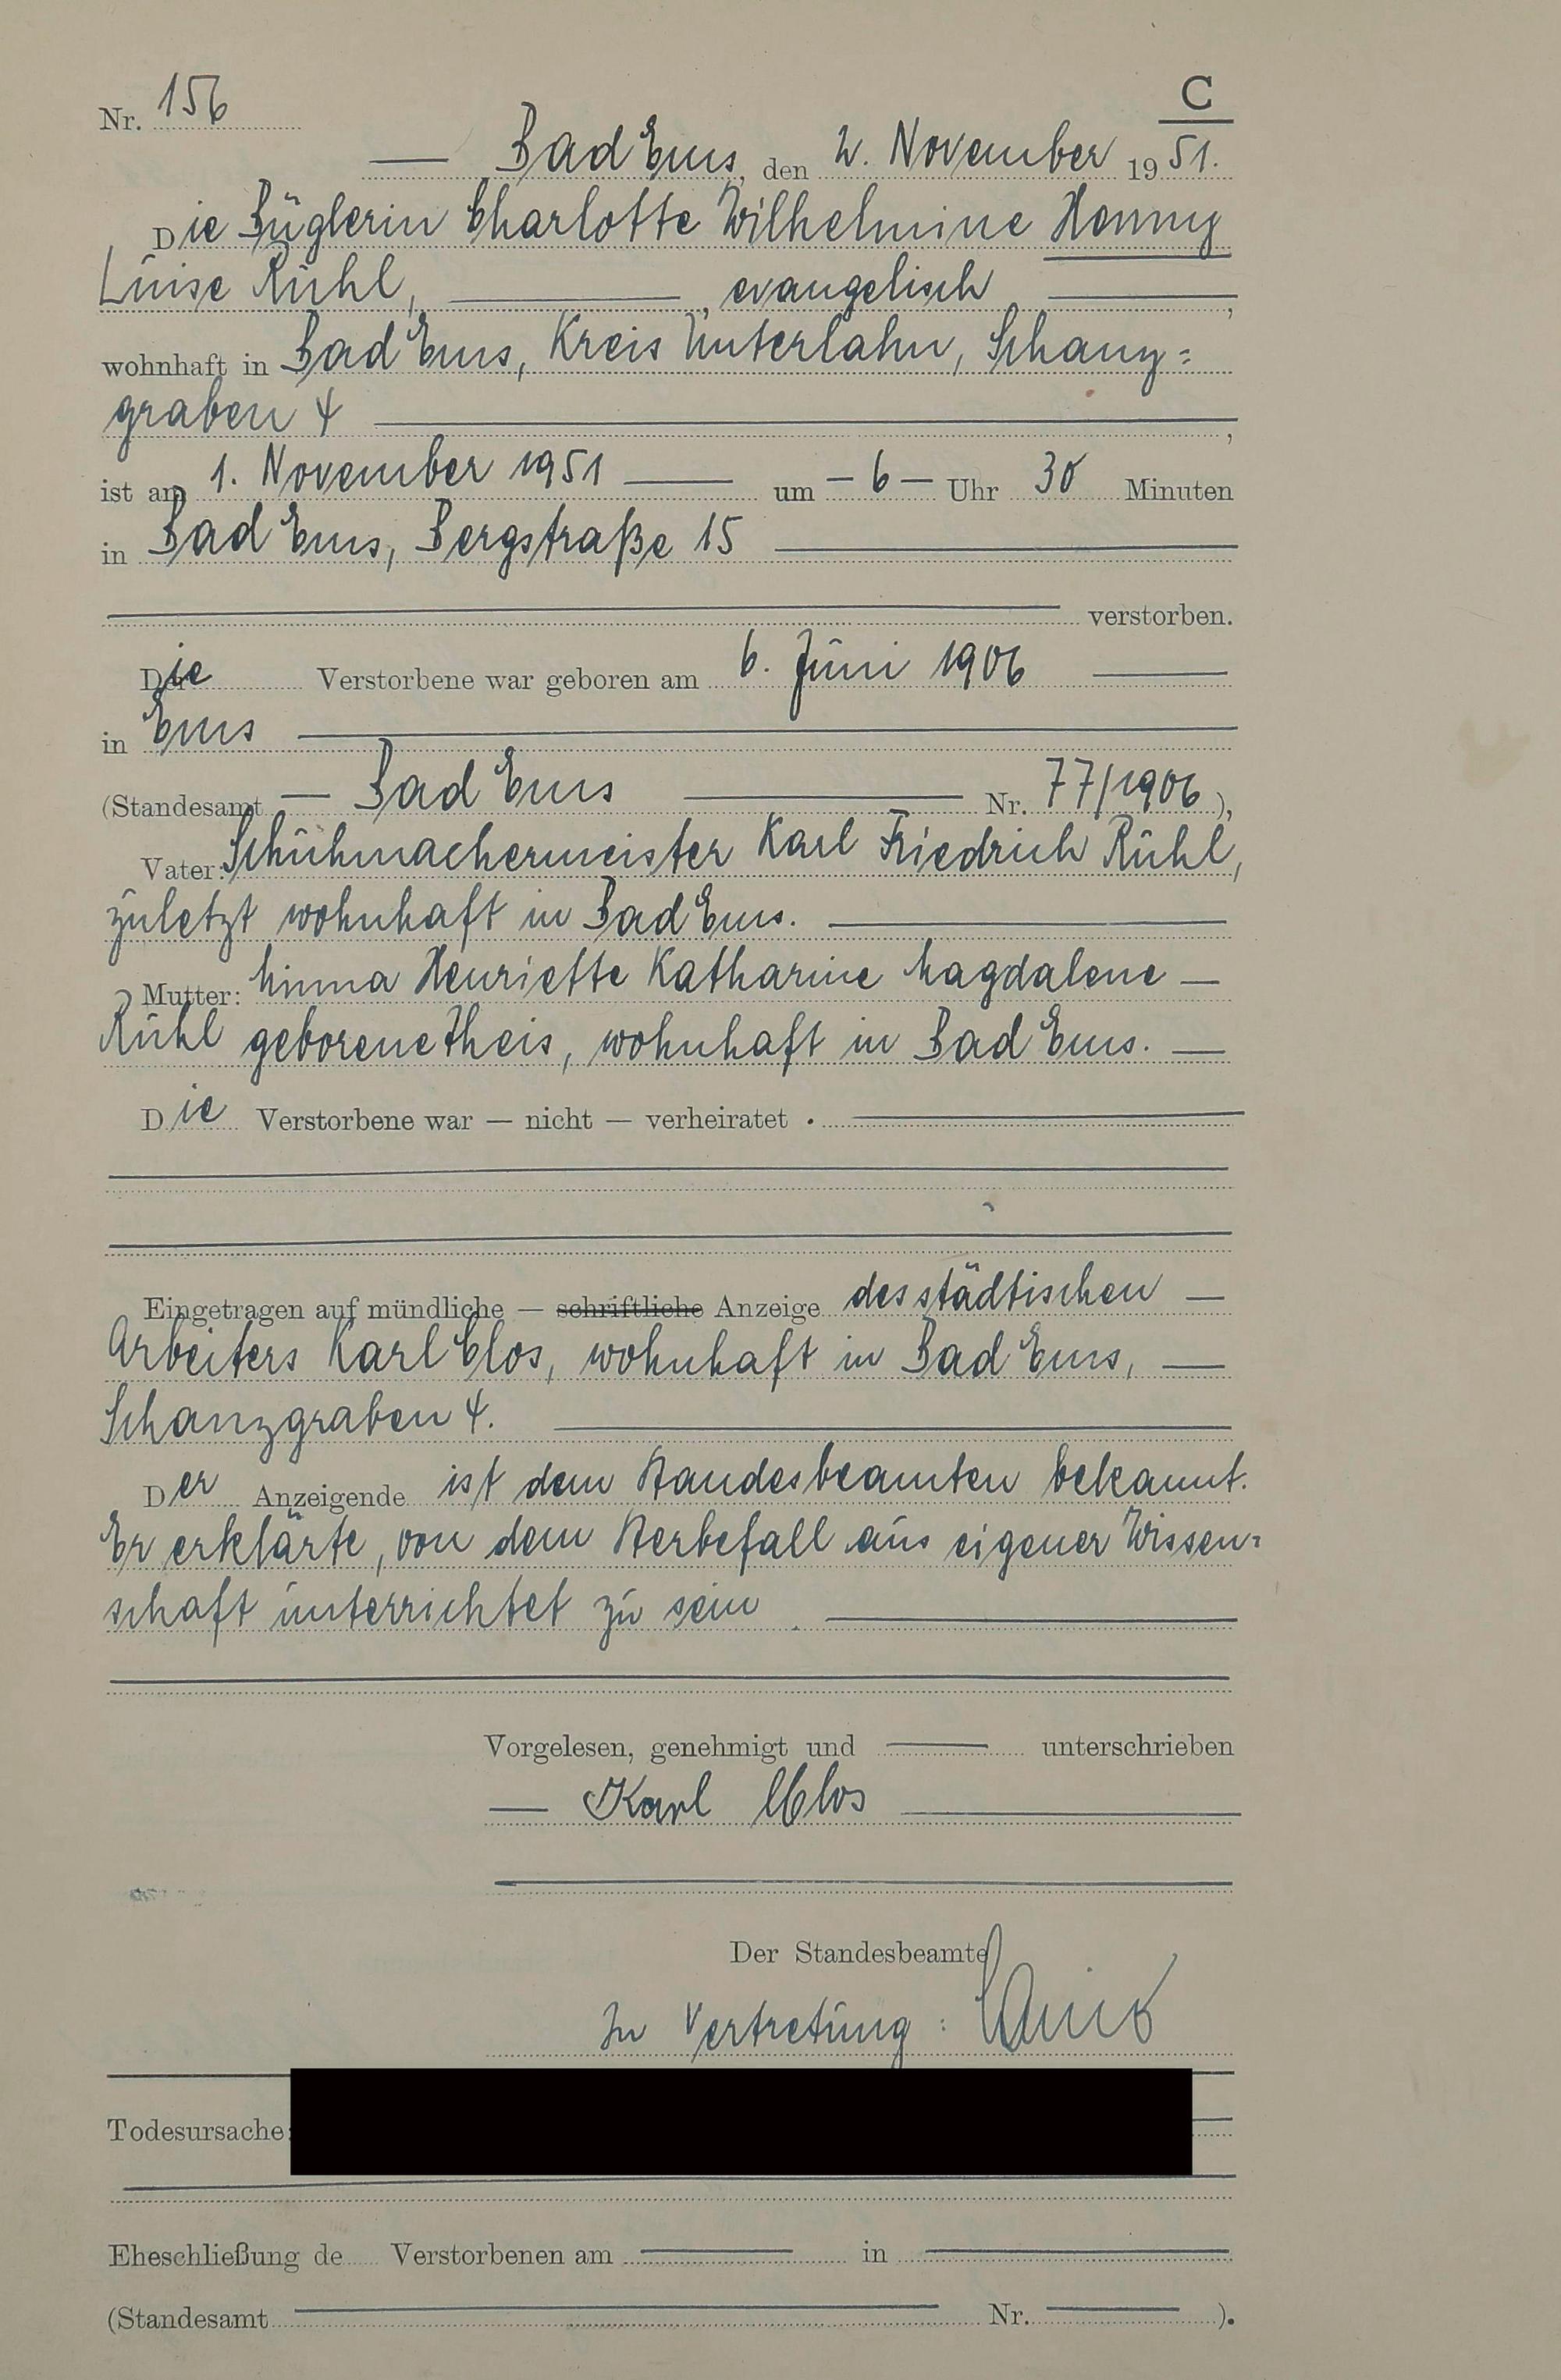 C
Nr. 156
Bad Ems, den 2. November 1951.
Die Büglerin Charlotte Wilhelmine Henny
Luise Rühl, evangelisch,
wohnhaft in Bad Ems, Kreis Unterlahn, Schanz=
graben 4,
ist am 1. November 1951 um – 6 – Uhr 30 Minuten
in Bad Ems, Bergstraße 15
verstorben.
Die Verstorbene war geboren am 6. Juni 1906
in Ems
(Standesamt — Bad Ems Nr. 77/1906),
Vater: Schuhmachermeister Karl Friedrich Rühl,
zuletzt wohnhaft in Bad Ems.
Mutter: Minna Henriette Katharine Magdalene —
Rühl geborene Theis, wohnhaft in Bad Ems. —
Die Verstorbene war — nicht — verheiratet .
Eingetragen auf mündliche — schriftliche Anzeige des städtischen —
Arbeiters Karl Clos, wohnhaft in Bad Ems, —
Schanzgraben 4.
Der Anzeigende ist dem Standesbeamten bekannt.
Er erklärte, von dem Sterbefall aus eigener Wissen=
schaft unterrichtet zu sein.
Vorgelesen, genehmigt und unterschrieben
— Karl Clos
Der Standesbeamte
In Vertretung:
Todesursache:
Eheschließung de Verstorbenen am in
(Standesamt Nr. ).